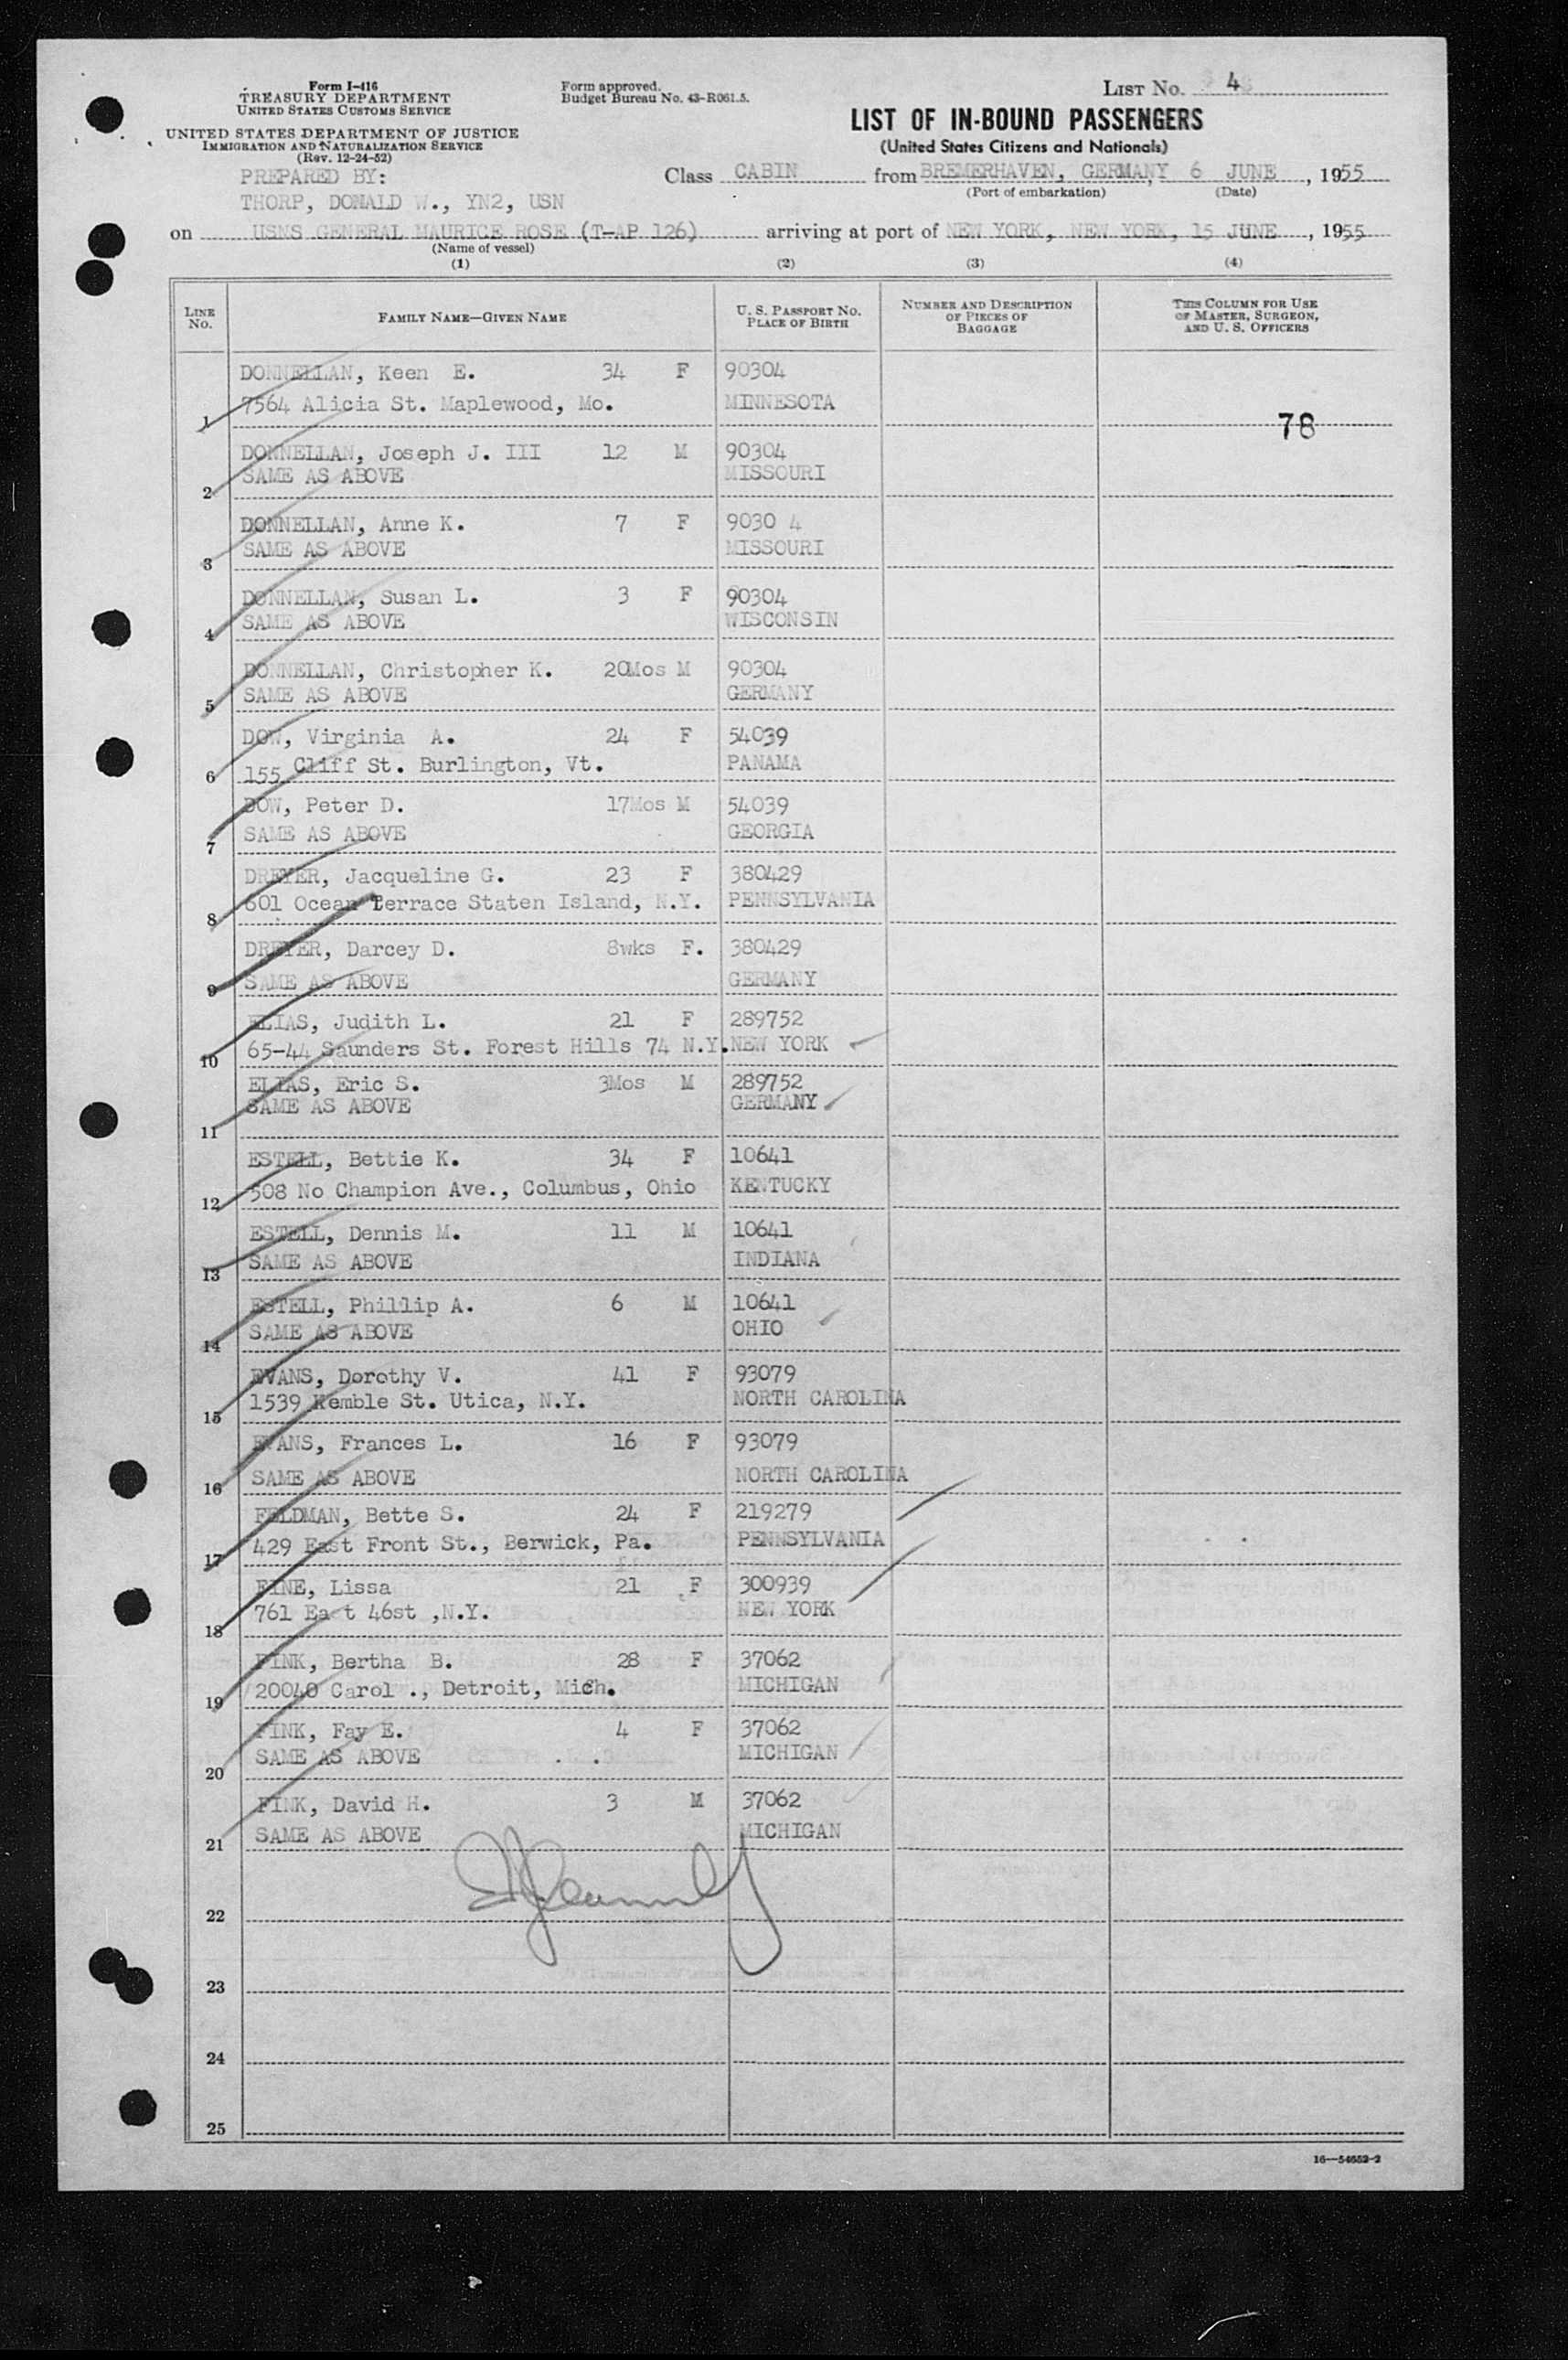 Form I-416
TREASURY DEPARTMENT
UNITED STATES CUSTOMS SERVICE
UNITED STATES DEPARTMENT OF JUSTICE
IMMIGRATION AND NATURALIZATION SERVICE
(Rev. 12-24-52)
Form approved.
Budget Bureau No. 43-R061.5.
LIST No. 4
LIST OF IN-BOUND PASSENGERS
(United States Citizens and Nationals)
PREPARED BY:
THORP, DONALD W., YN2, USN
Class CABIN from BREMERHAVEN, GERMANY, 6 JUNE, 1955
(Port of embarkation) (Date)
on USNS GENERAL MAURICE ROSE (T-AP 126) arriving at port of NEW YORK, NEW YORK, 15 JUNE, 1955
(Name of vessel)
(1) (2) (3) (4)
LINE No. FAMILY NAME—GIVEN NAME U. S. PASSPORT No. PLACE OF BIRTH NUMBER AND DESCRIPTION OF PIECES OF BAGGAGE THIS COLUMN FOR USE OF MASTER, SURGEON, AND U. S. OFFICERS
DONNELLAN, Keen E. 34 F 90304
1 7564 Alicia St. Maplewood, Mo. MINNESOTA
78
DONNELLAN, Joseph J. III 12 M 90304
2 SAME AS ABOVE MISSOURI
DONNELLAN, Anne K. 7 F 9030 4
3 SAME AS ABOVE MISSOURI
DONNELLAN, Susan L. 3 F 90304
4 SAME AS ABOVE WISCONSIN
DONNELLAN, Christopher K. 20Mos M 90304
5 SAME AS ABOVE GERMANY
DOW, Virginia A. 24 F 54039
6 155 Cliff St. Burlington, Vt. PANAMA
DOW, Peter D. 17Mos M 54039
7 SAME AS ABOVE GEORGIA
DREYER, Jacqueline G. 23 F 380429
8 601 Ocean Terrace Staten Island, N.Y. PENNSYLVANIA
DREYER, Darcey D. 8wks F. 380429
9 SAME AS ABOVE GERMANY
ELIAS, Judith L. 21 F 289752
10 65-44 Saunders St. Forest Hills 74 N.Y. NEW YORK
ELIAS, Eric S. 3Mos M 289752
11 SAME AS ABOVE GERMANY
ESTELL, Bettie K. 34 F 10641
12 508 No Champion Ave., Columbus, Ohio KENTUCKY
ESTELL, Dennis M. 11 M 10641
13 SAME AS ABOVE INDIANA
ESTELL, Phillip A. 6 M 10641
14 SAME AS ABOVE OHIO
EVANS, Dorothy V. 41 F 93079
15 1539 Kemble St. Utica, N.Y. NORTH CAROLINA
EVANS, Frances L. 16 F 93079
16 SAME AS ABOVE NORTH CAROLINA
FELDMAN, Bette S. 24 F 219279
17 429 East Front St., Berwick, Pa. PENNSYLVANIA
FINE, Lissa 21 F 300939
18 761 East 46st ,N.Y. NEW YORK
FINK, Bertha B. 28 F 37062
19 20040 Carol ., Detroit, Mich. MICHIGAN
FINK, Fay E. 4 F 37062
20 SAME AS ABOVE MICHIGAN
FINK, David H. 3 M 37062
21 SAME AS ABOVE MICHIGAN
22
23
24
25
16—54652-2